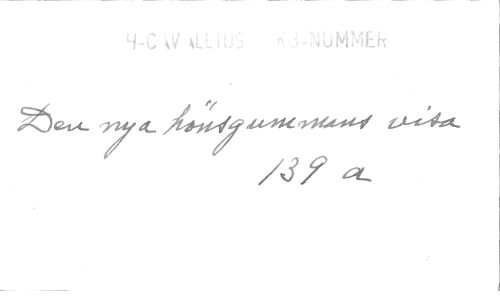 H-CAVALLIUS KB-NUMMER
Den nya hönsgummans visa
139 a